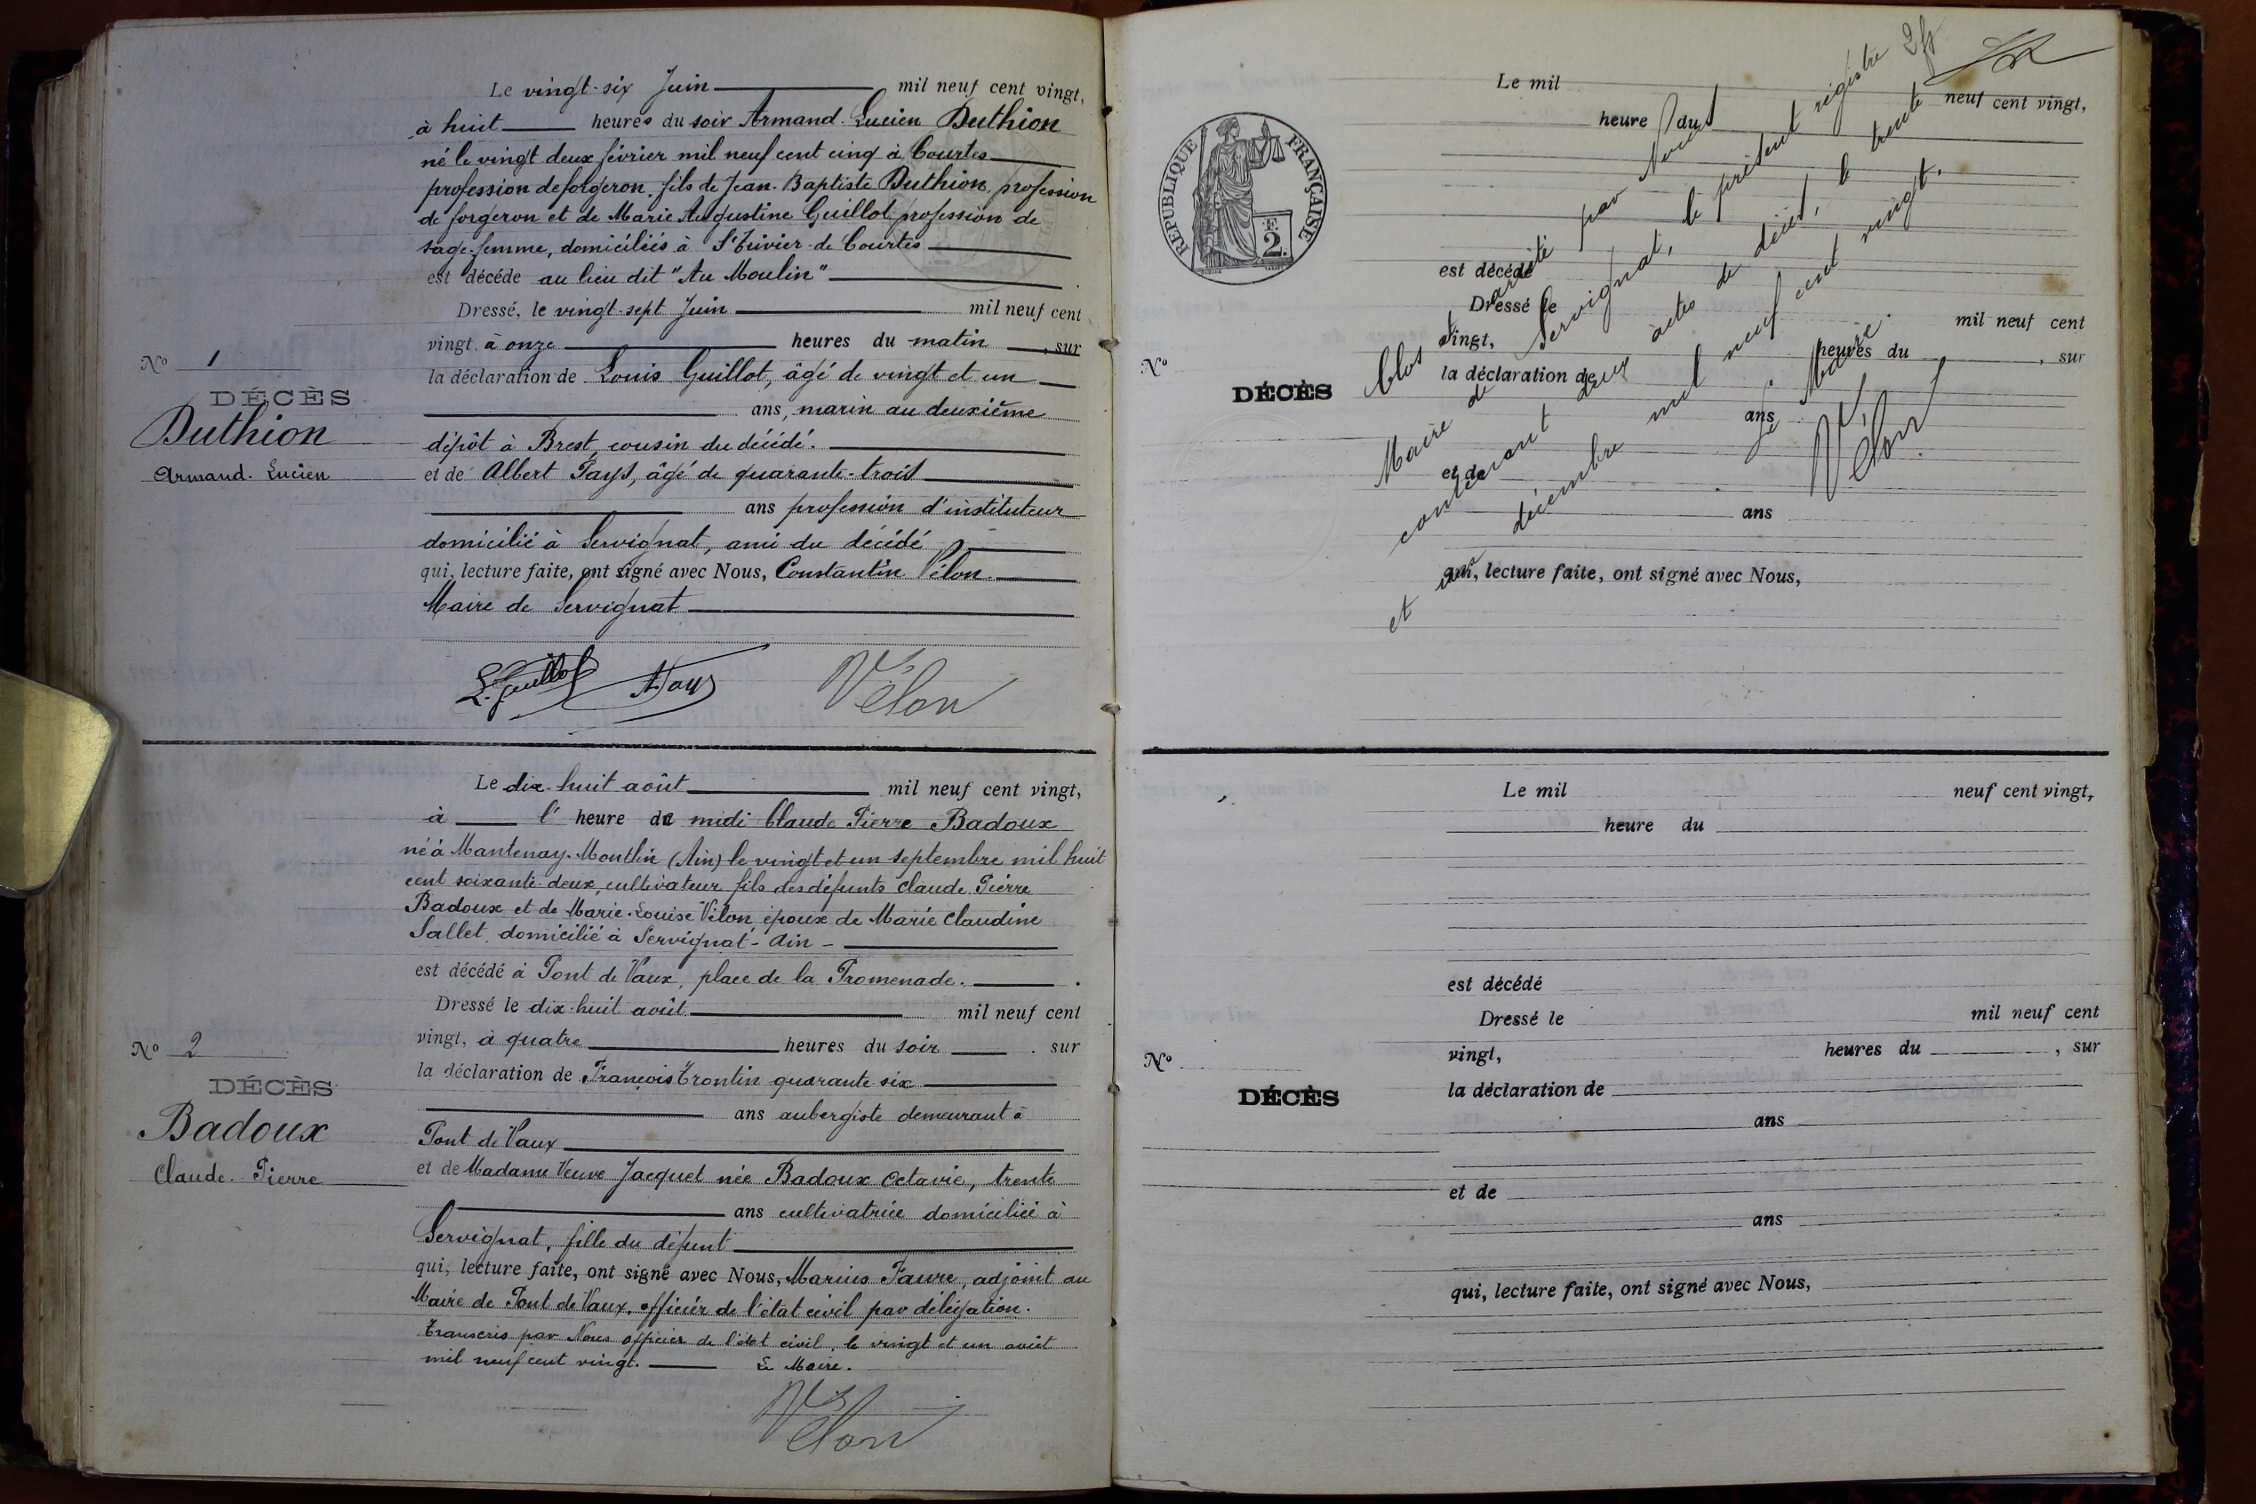 Le vingt-six Juin mil neuf cent vingt,
à huit heures du soir Armand-Lucien Duthion
né le vingt deux février mil neuf cent cinq à Courtes
profession de forgeron, fils de Jean-Baptiste Duthion, profession
de forgeron et de Marie Augustine Guillot profession de
sage-femme, domiciliés à St Trivier-de Courtes
est décédé au lieu dit "Au Moulin"
Dressé, le vingt-sept Juin mil neuf cent
vingt, à onze heures du matin, sur
la déclaration de Louis Guillot, âgé de vingt et un
ans, marin au deuxième
dépôt à Brest, cousin du décédé.
et de Albert Pays, âgé de quarante-trois
ans profession d'instituteur
domicilié à Servignat, ami du décédé
qui, lecture faite, ont signé avec Nous, Constantin Vélon
Maire de Servignat
L. Guillot A. Pays Vélon
No 1
DÉCÈS
Duthion
Armand-Lucien
Le dix-huit août mil neuf cent vingt,
à l' heure de midi Claude Pierre Badoux
né à Mantenay-Montlin (Ain) le vingt et un septembre mil huit
cent soixante-deux, cultivateur fils des défunts Claude Pierre
Badoux et de Marie-Louise Vélon époux de Marie Claudine
Sallet, domicilié à Servignat-Ain-
est décédé à Pont de Vaux, place de la Promenade.
Dressé le dix-huit août mil neuf cent
vingt, à quatre heures du soir, sur
la déclaration de François Trontin quarante-six
ans aubergiste demeurant à
Pont de Vaux
et de Madame Veuve Jacquet née Badoux Octavie, trente
ans cultivatrice domiciliée à
Servignat, fille du défunt
qui, lecture faite, ont signé avec Nous, Marius Faure, adjoint au
Maire de Pont de Vaux, officier de l'état civil par délégation.
Transcris par Nous officier de l'état civil, le vingt et un août
mil neuf cent vingt. Le Maire.
Vélon
No 2
DÉCÈS
Badoux
Claude-Pierre
RÉPUBLIQUE FRANÇAISE
2
Le mil neuf cent vingt,
heure du
est décédé
Dressé le mil neuf cent
vingt, heures du , sur
la déclaration de
ans
et de
ans
qui, lecture faite, ont signé avec Nous,
No
DÉCÈS
Clos et arrêté par Nous
Maire de Servignat, le présent registre
contenant deux actes de décès, le trente
et un décembre mil neuf cent vingt.
Le Maire.
Vélon
Le mil neuf cent vingt,
heure du
est décédé
Dressé le mil neuf cent
vingt, heures du , sur
la déclaration de
ans
et de
ans
qui, lecture faite, ont signé avec Nous,
No
DÉCÈS